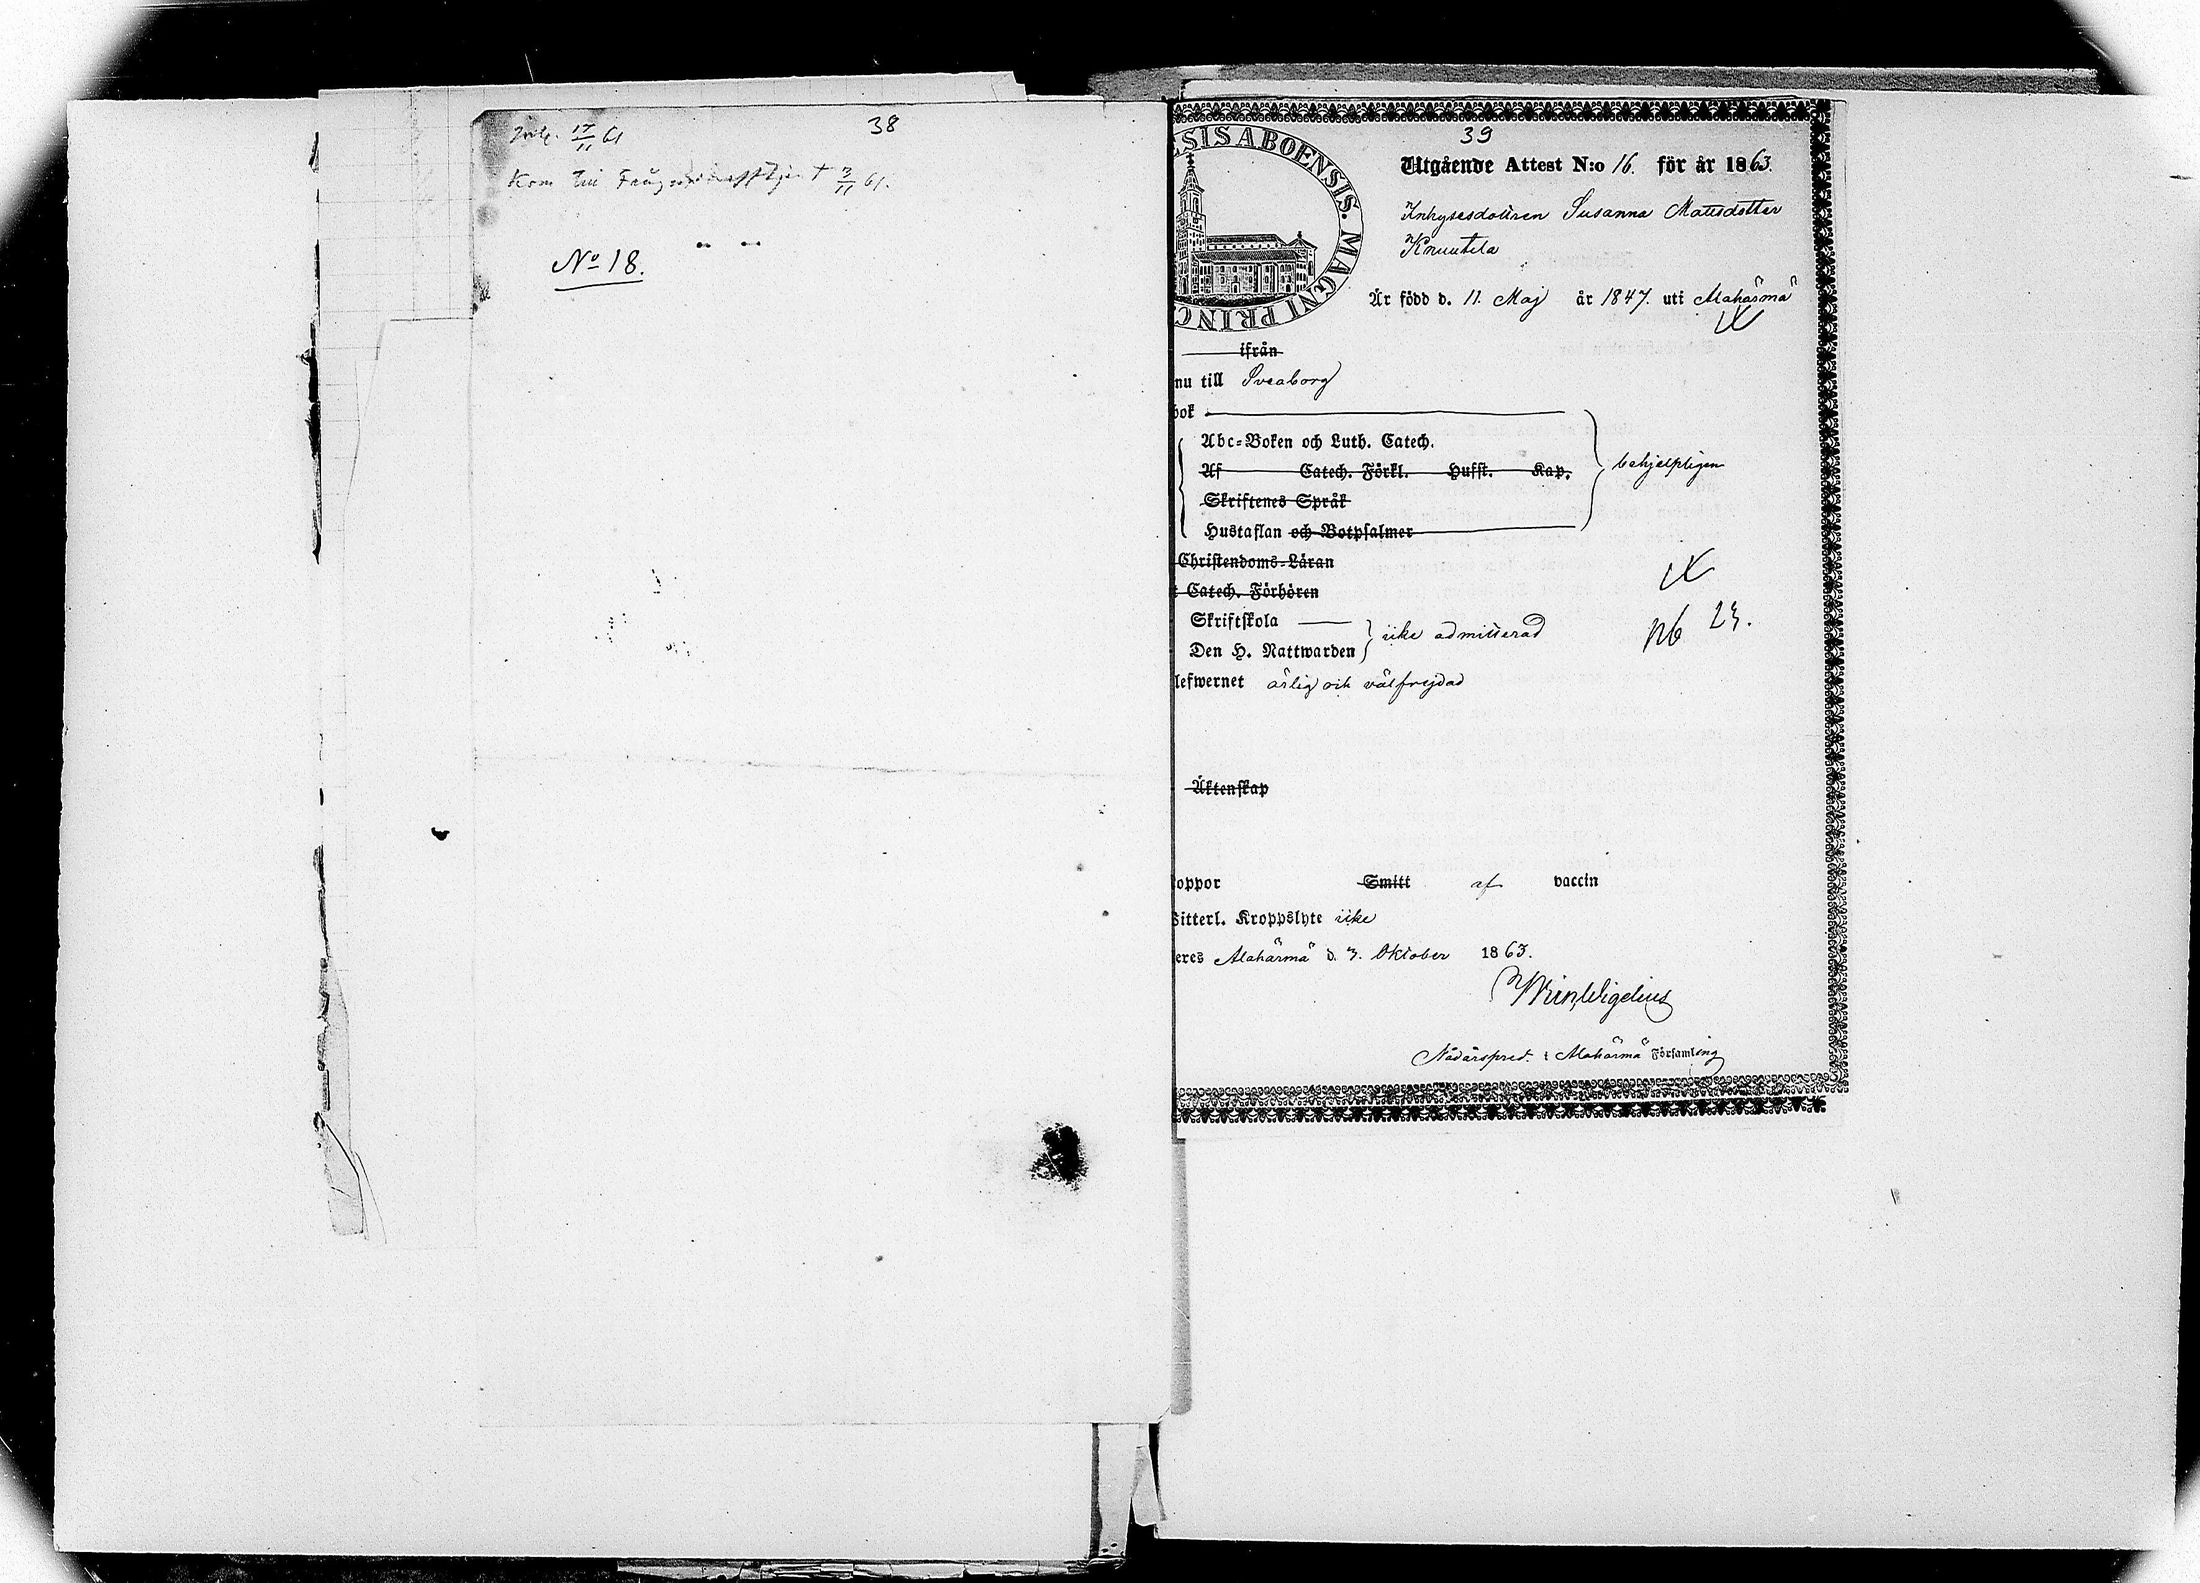 38
17/11 61
Kom till 3/11 61.
No 18.
39
SIS ABOENSIS. MAGNI PRINC
Utgående Attest N:o 16. för år 1863.
Inhysesdottren Susanna Mattsdotter
Knuutila
Är född d. 11. Maj år 1847. uti Alahärmä
ifrån
nu till Sveaborg
bok
Abc=Boken och Luth. Catech.
Af Catech. Förkl. Hufst. Kap.
behjelpligen
Skriftenes Språk
Hustaflan och Botpsalmer
Christendoms=Läran
Catech. Förhören
Skriftskola
icke admitterad
nb 23.
Den H. Nattwarden
lefwernet ärlig och välfrejdad
Äktenskap
oppor Smitt af vaccin
itterl. Kroppslyte icke
eres Alahärmä d. 3. Oktober 1863.
Wigelius
Nådårspred. i Alahärmä Församling